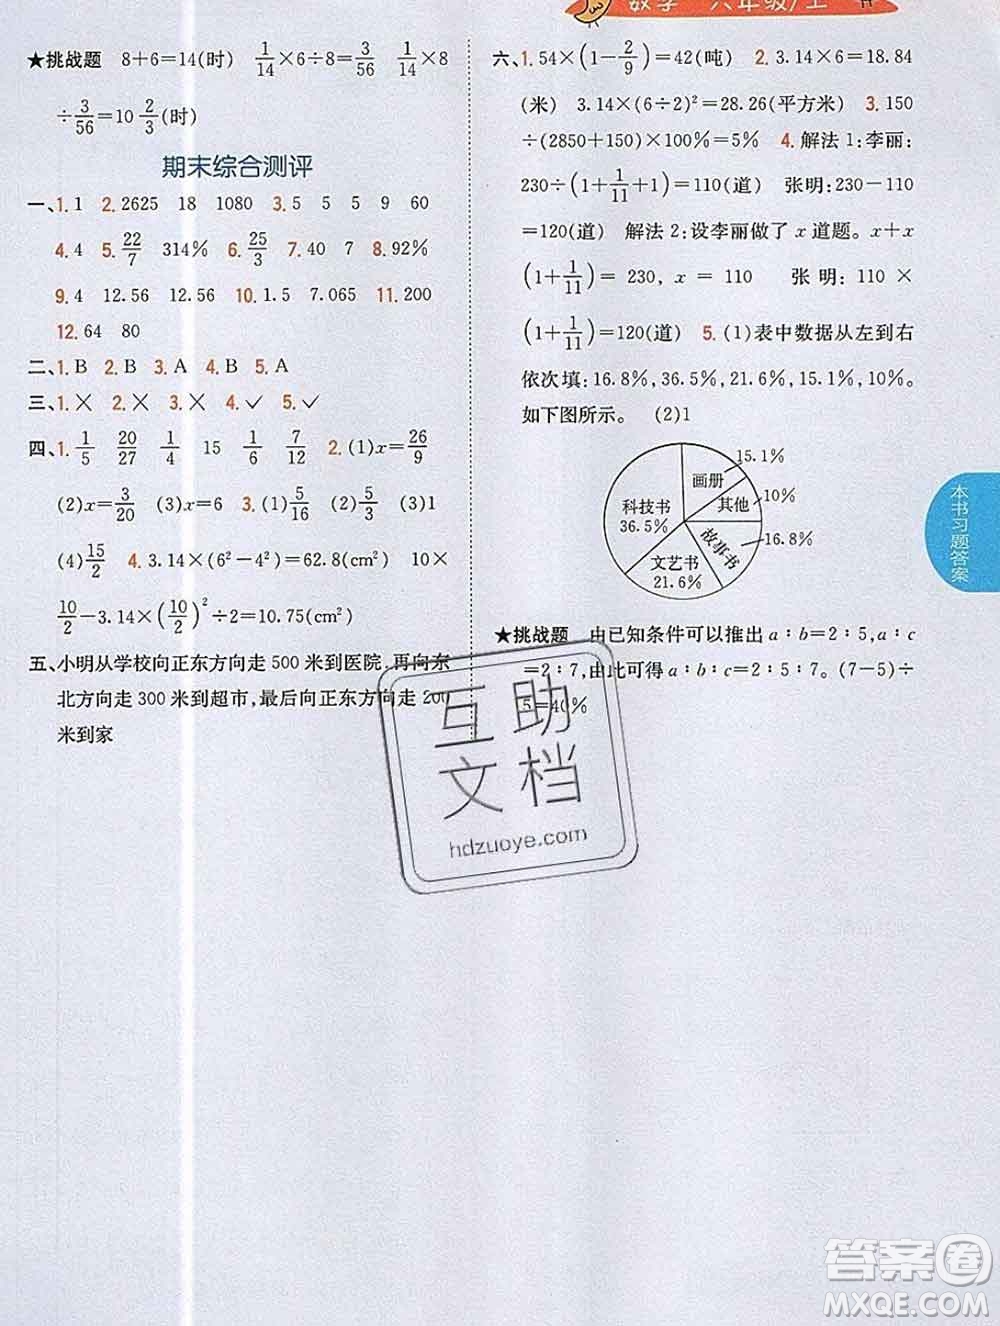 数学 六年级/上
★挑战题 8+6=14(时) 1/14×6÷8=3/56 1/14×8
÷3/56=10 2/3(时)
期末综合测评
一、1. 1 2. 2625 18 1080 3. 5 5 5 9 60
4. 4 5. 22/7 314% 6. 25/3 7. 40 7 8. 92%
9. 4 12.56 12.56 10. 1.5 7.065 11. 200
12. 64 80
二、1. B 2. B 3. A 4. B 5. A
三、1. × 2. × 3. × 4. ✓ 5. ✓
四、1. 1/5 20/27 1/4 15 1/6 7/12 2. (1)x=26/9
(2)x=3/20 (3)x=6 3. (1)5/16 (2)5/8 (3)1
(4)15/2 4. 3.14×(6²-4²)=62.8(cm²) 10×
10/2-3.14×(10/2)²÷2=10.75(cm²)
五、小明从学校向正东方向走 500 米到医院,再向东
北方向走 300 米到超市,最后向正东方向走 200
米到家
六、1. 54×(1-2/9)=42(吨) 2. 3.14×6=18.84
(米) 3.14×(6÷2)²=28.26(平方米) 3. 150
÷(2850+150)×100%=5% 4. 解法 1:李丽:
230÷(1+1/11+1)=110(道) 张明:230-110
=120(道) 解法 2:设李丽做了 x 道题。x+x
(1+1/11)=230,x=110 张明:110×
(1+1/11)=120(道) 5. (1)表中数据从左到右
依次填:16.8%,36.5%,21.6%,15.1%,10%。
如下图所示。 (2)1
画册
15.1%
其他
10%
科技书
36.5%
故事书
16.8%
文艺书
21.6%
★挑战题 由已知条件可以推出 a∶b=2∶5,a∶c
=2∶7,由此可得 a∶b∶c=2∶5∶7。(7-5)÷
5=40%
本书习题答案
互助
文档
hdzuoye.com
答案圈
MXQE.COM